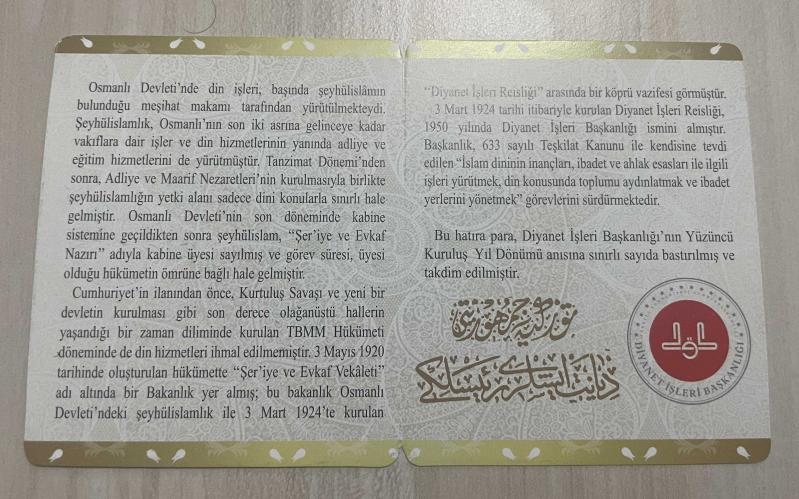 Osmanlı Devleti’nde din işleri, başında şeyhülislâmın
bulunduğu meşihat makamı tarafından yürütülmekteydi.
Şeyhülislamlık, Osmanlı’nın son iki asrına gelinceye kadar
vakıflara dair işler ve din hizmetlerinin yanında adliye ve
eğitim hizmetlerini de yürütmüştür. Tanzimat Dönemi’nden
sonra, Adliye ve Maarif Nezaretleri’nin kurulmasıyla birlikte
şeyhülislamlığın yetki alanı sadece dini konularla sınırlı hale
gelmiştir. Osmanlı Devleti’nin son döneminde kabine
sistemine geçildikten sonra şeyhülislam, “Şer’iye ve Evkaf
Nazırı” adıyla kabine üyesi sayılmış ve görev süresi, üyesi
olduğu hükümetin ömrüne bağlı hale gelmiştir.
Cumhuriyet’in ilanından önce, Kurtuluş Savaşı ve yeni bir
devletin kurulması gibi son derece olağanüstü hallerin
yaşandığı bir zaman diliminde kurulan TBMM Hükümeti
döneminde de din hizmetleri ihmal edilmemiştir. 3 Mayıs 1920
tarihinde oluşturulan hükümette “Şer’iye ve Evkaf Vekâleti”
adı altında bir Bakanlık yer almış; bu bakanlık Osmanlı
Devleti’ndeki şeyhülislamlık ile 3 Mart 1924’te kurulan
“Diyanet İşleri Reisliği” arasında bir köprü vazifesi görmüştür.
3 Mart 1924 tarihi itibariyle kurulan Diyanet İşleri Reisliği,
1950 yılında Diyanet İşleri Başkanlığı ismini almıştır.
Başkanlık, 633 sayılı Teşkilat Kanunu ile kendisine tevdi
edilen “İslam dininin inançları, ibadet ve ahlak esasları ile ilgili
işleri yürütmek, din konusunda toplumu aydınlatmak ve ibadet
yerlerini yönetmek” görevlerini sürdürmektedir.
Bu hatıra para, Diyanet İşleri Başkanlığı’nın Yüzüncü
Kuruluş Yıl Dönümü anısına sınırlı sayıda bastırılmış ve
takdim edilmiştir.
DİYANET İŞLERİ BAŞKANLIĞI